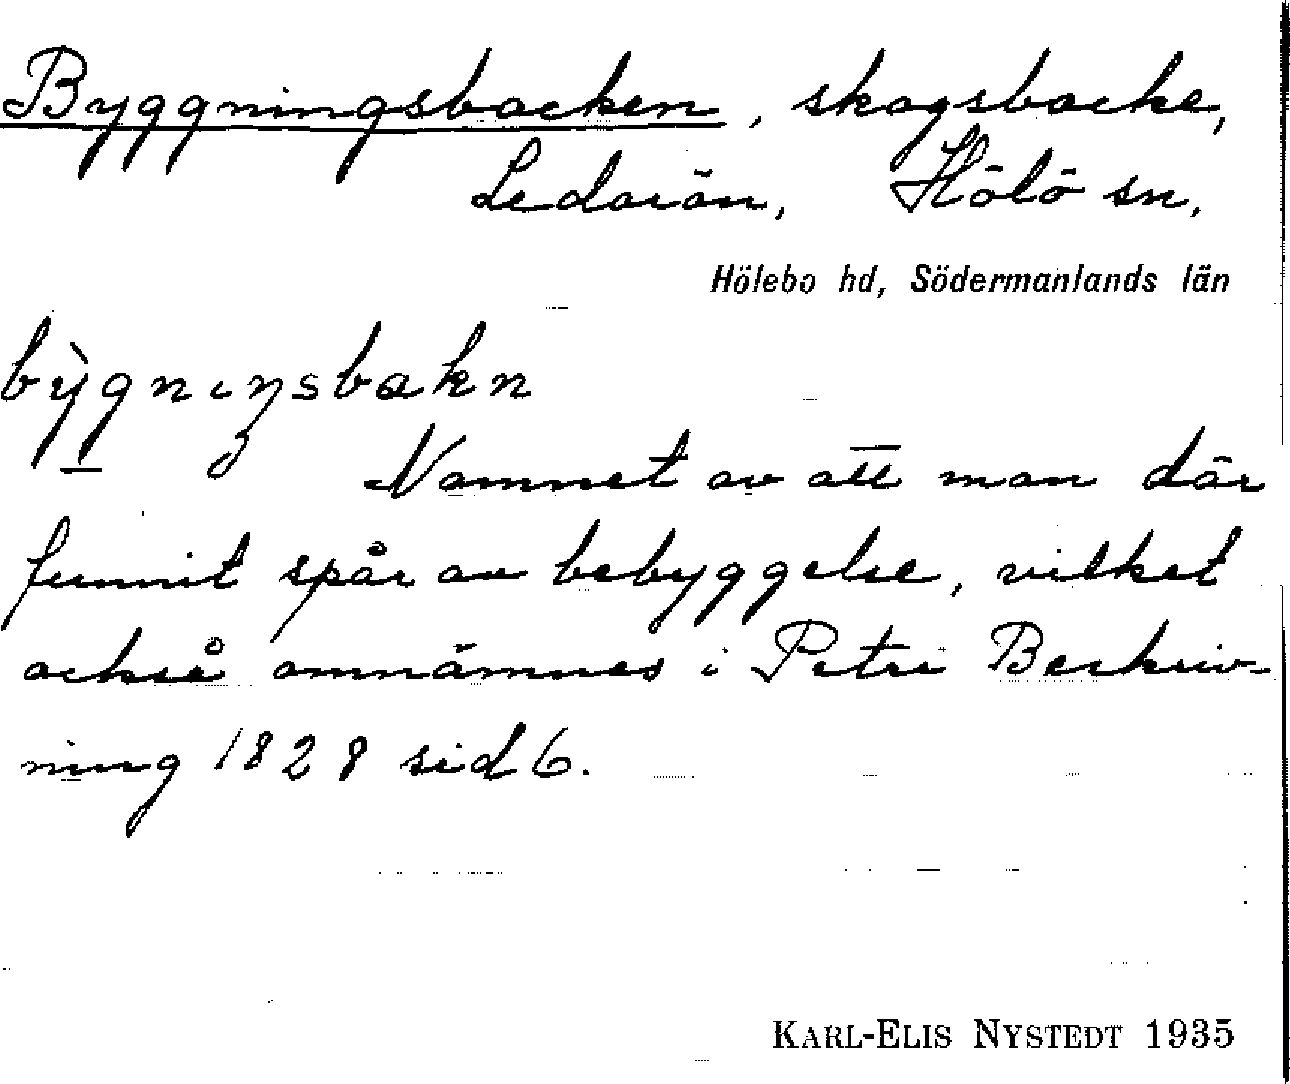 Byggningsbacken, skogsbacke,
Ledarön, Hölö sn,
Hölebo hd, Södermanlands län
bỳgnıŋsbakn
Namnet av att man där
funnit spår av bebyggelse, vilket
också omnämnes i Petri Beskriv-
ning 1828 sid 6.
KARL-ELIS NYSTEDT 1935